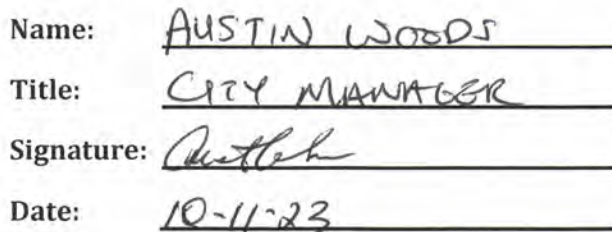 Name: AUSTIN WOODS
Title: CITY MANAGER
Signature:
Date: 10-11-23